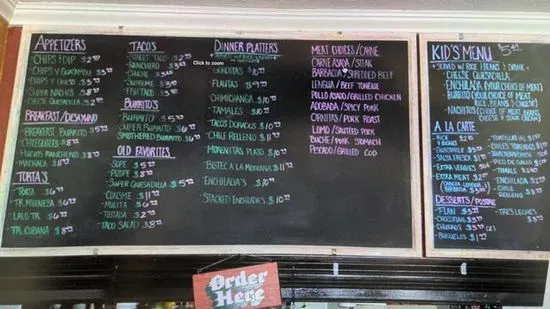 APPETIZERS
- CHIPS & DIP $2
- CHIPS Y GUACMOLE $3
- CHIPS Y QUESO $3
- SUPER NACHOS $8
- CHEESE QUESADILLA $2
BREAKFAST/DESAYUNO
- BREAKFAST BURRITO $5
- CHILEQUILES $8
- HUEVOS RANCHEROS $8
- MACHACA $8
TORTA'S
- TORTA $6
- TR. MILENESA $6
- LALO TR. $6
- TR. CUBANA $8
TACOS
- STREET TACO $2
- RANCHERO $3
- CRUCHE $3
- SUPREME
- FISH TACO $3
BURRITO'S
- BURRITO $5
- SUPER BURRITO $6
- SMOTHERED BURRITO $6
OLD FAVORITES
- SOPE $5
- PIZOPE $8
- SUPER QUESADILLA $5
- CONSME $11
- MULITA $6
- TOSTADA $2
- TACO SALAD $8
DINNER PLATTERS
Click to zoom
- GORDITAS $10
- FLAUTAS $9
- CHIMICHANGA $10
- TAMALES $10
- TACOS DORADOS $10
- CHILE RELLENO $11
- MORENITAS PLATO $10
- BISTEC A LA MEXICANA $11
- ENCHILADA'S $10
- STACKED ENCHILADA'S $10
MEAT CHOICES/CARNE
CARNE ASADA/STEAK
BARBACOA/SHREDDED BEEF
LENGUA/BEEF TONGUE
POLLO ASADO/GRILLED CHICKEN
ADOBADA/SPICY PORK
CARNITAS/PORK ROAST
LOMO/SAUTEED PORK
BUCHE/PORK STOMACH
PESCADO/GRILLED COD
KID'S MENU $5.49
* SERVED W/ RICE, BEANS & DRINK *
- CHEESE QUESADILLA
- ENCHILADA (YOUR CHOICE OF MEAT)
- BURRITO (YOUR CHOICE OF MEAT
RICE, BEANS & CHEESE)
- NACHITOS (CHOICE OF MEAT, BEANS,
CHEESE & SOUR CREAM)
A LA CARTE
- RICE
- BEANS
- GUACAMOLE $3
- SALSA FRESCA $1
- EXTRA VEGGIES 50¢
- EXTRA MEAT $2
(CABEZA, LENGUA
& BARBACOA) $3
- TORTILLAS
- CHILES TOREADOS $1
- PICO DE GALLO
- TAMALE
- ENCHILADA
- CHILE
RELLENO
DESSERTS/POSTRE
- FLAN $3
- CHOCOFLAN $3
- CHURRO $3 (2)
- BUÑUELOS $1
- TRES LECHES
Order
Here